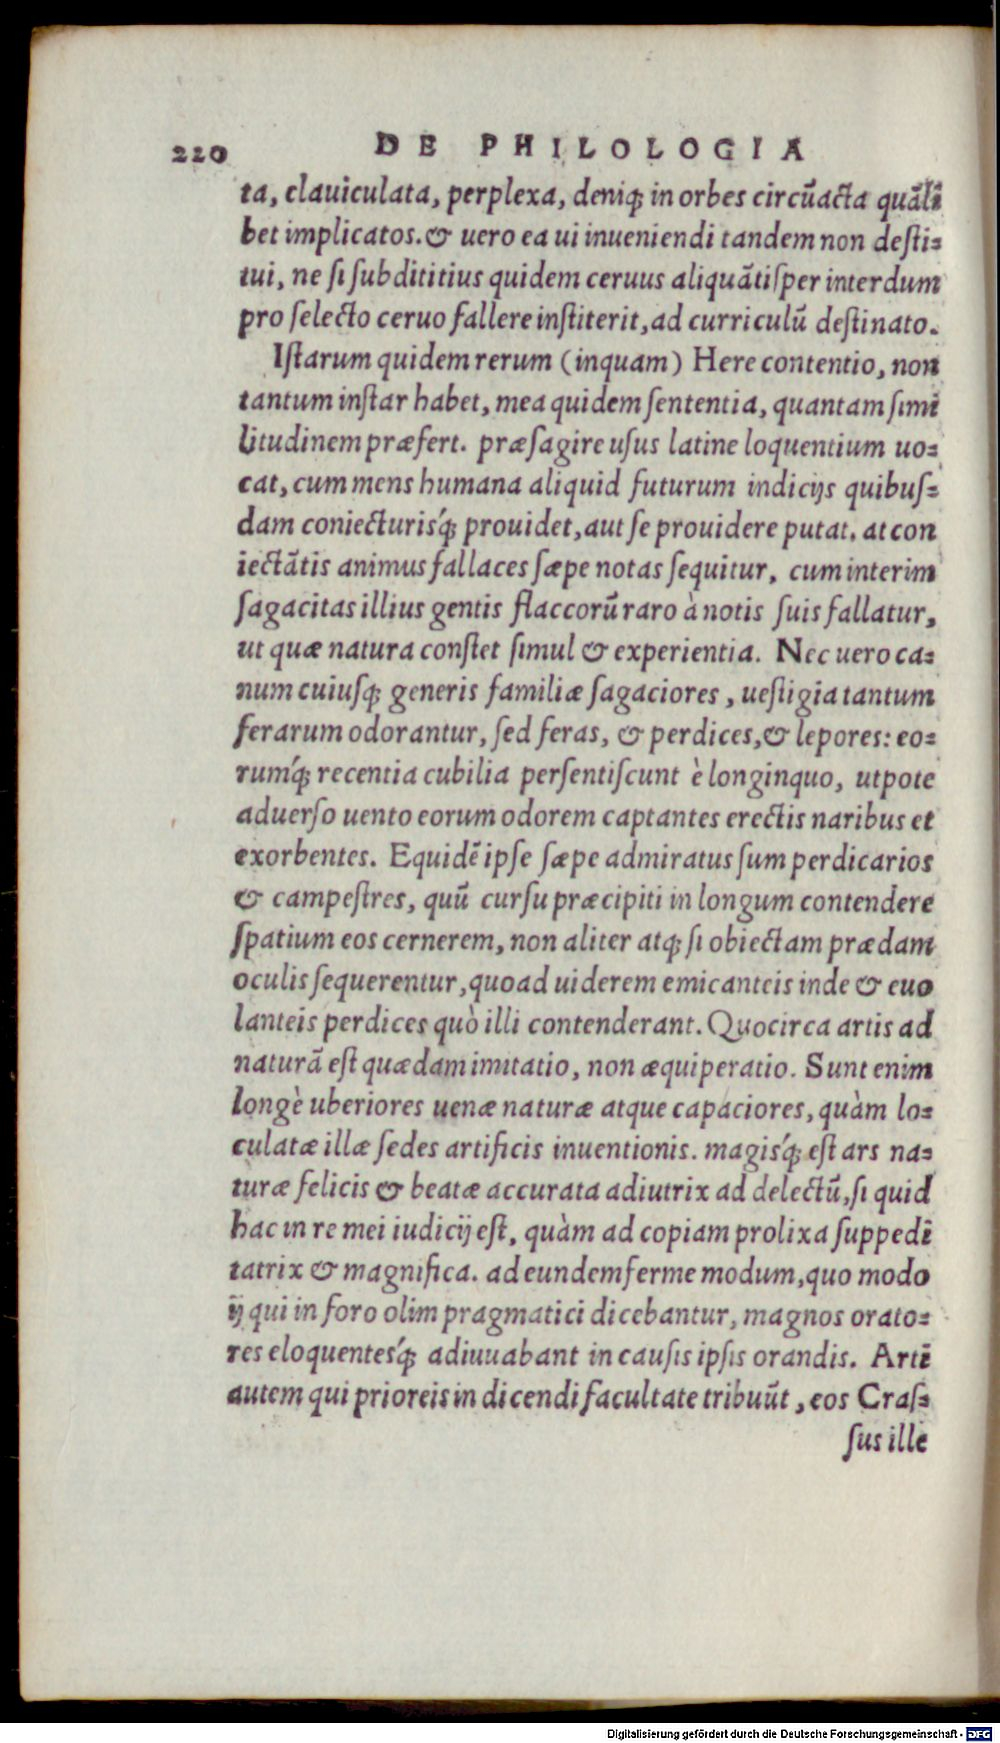 220 DE PHILOLOGIA
ta, clauiculata, perplexa, deniq; in orbes circũacta quãlĩ
bet implicatos. & uero ea ui inueniendi tandem non desti=
tui, ne si subdititius quidem ceruus aliquãtisper interdum
pro selecto ceruo fallere institerit, ad curriculũ destinato.
Istarum quidem rerum (inquam) Here contentio, non
tantum instar habet, mea quidem sententia, quantam simi
litudinem præfert. præsagire usus latine loquentium uo=
cat, cum mens humana aliquid futurum indicijs quibus=
dam coniecturisq́; prouidet, aut se prouidere putat. at con
iectãtis animus fallaces sæpe notas sequitur, cum interim
sagacitas illius gentis flaccorũ raro à notis suis fallatur,
ut quæ natura constet simul & experientia. Nec uero ca=
num cuiusq; generis familiæ sagaciores, uestigia tantum
ferarum odorantur, sed feras, & perdices, & lepores: eo=
rumq́; recentia cubilia persentiscunt è longinquo, utpote
aduerso uento eorum odorem captantes erectis naribus et
exorbentes. Equidẽ ipse sæpe admiratus sum perdicarios
& campestres, quũ cursu præcipiti in longum contendere
spatium eos cernerem, non aliter atq; si obiectam prædam
oculis sequerentur, quoad uiderem emicanteis inde & euo
lanteis perdices quò illi contenderant. Quocirca artis ad
naturã est quædam imitatio, non æquiperatio. Sunt enim
longè uberiores uenæ naturæ atque capaciores, quàm lo=
culatæ illæ sedes artificis inuentionis. magisq́; est ars na=
turæ felicis & beatæ accurata adiutrix ad delectũ, si quid
hac in re mei iudicij est, quàm ad copiam prolixa suppedi
tatrix & magnifica. ad eundem ferme modum, quo modo
ij qui in foro olim pragmatici dicebantur, magnos orato=
res eloquentesq́; adiuuabant in causis ipsis orandis. Arti
autem qui prioreis in dicendi facultate tribuũt, eos Cras=
sus ille
Digitalisierung gefördert durch die Deutsche Forschungsgemeinschaft - DFG